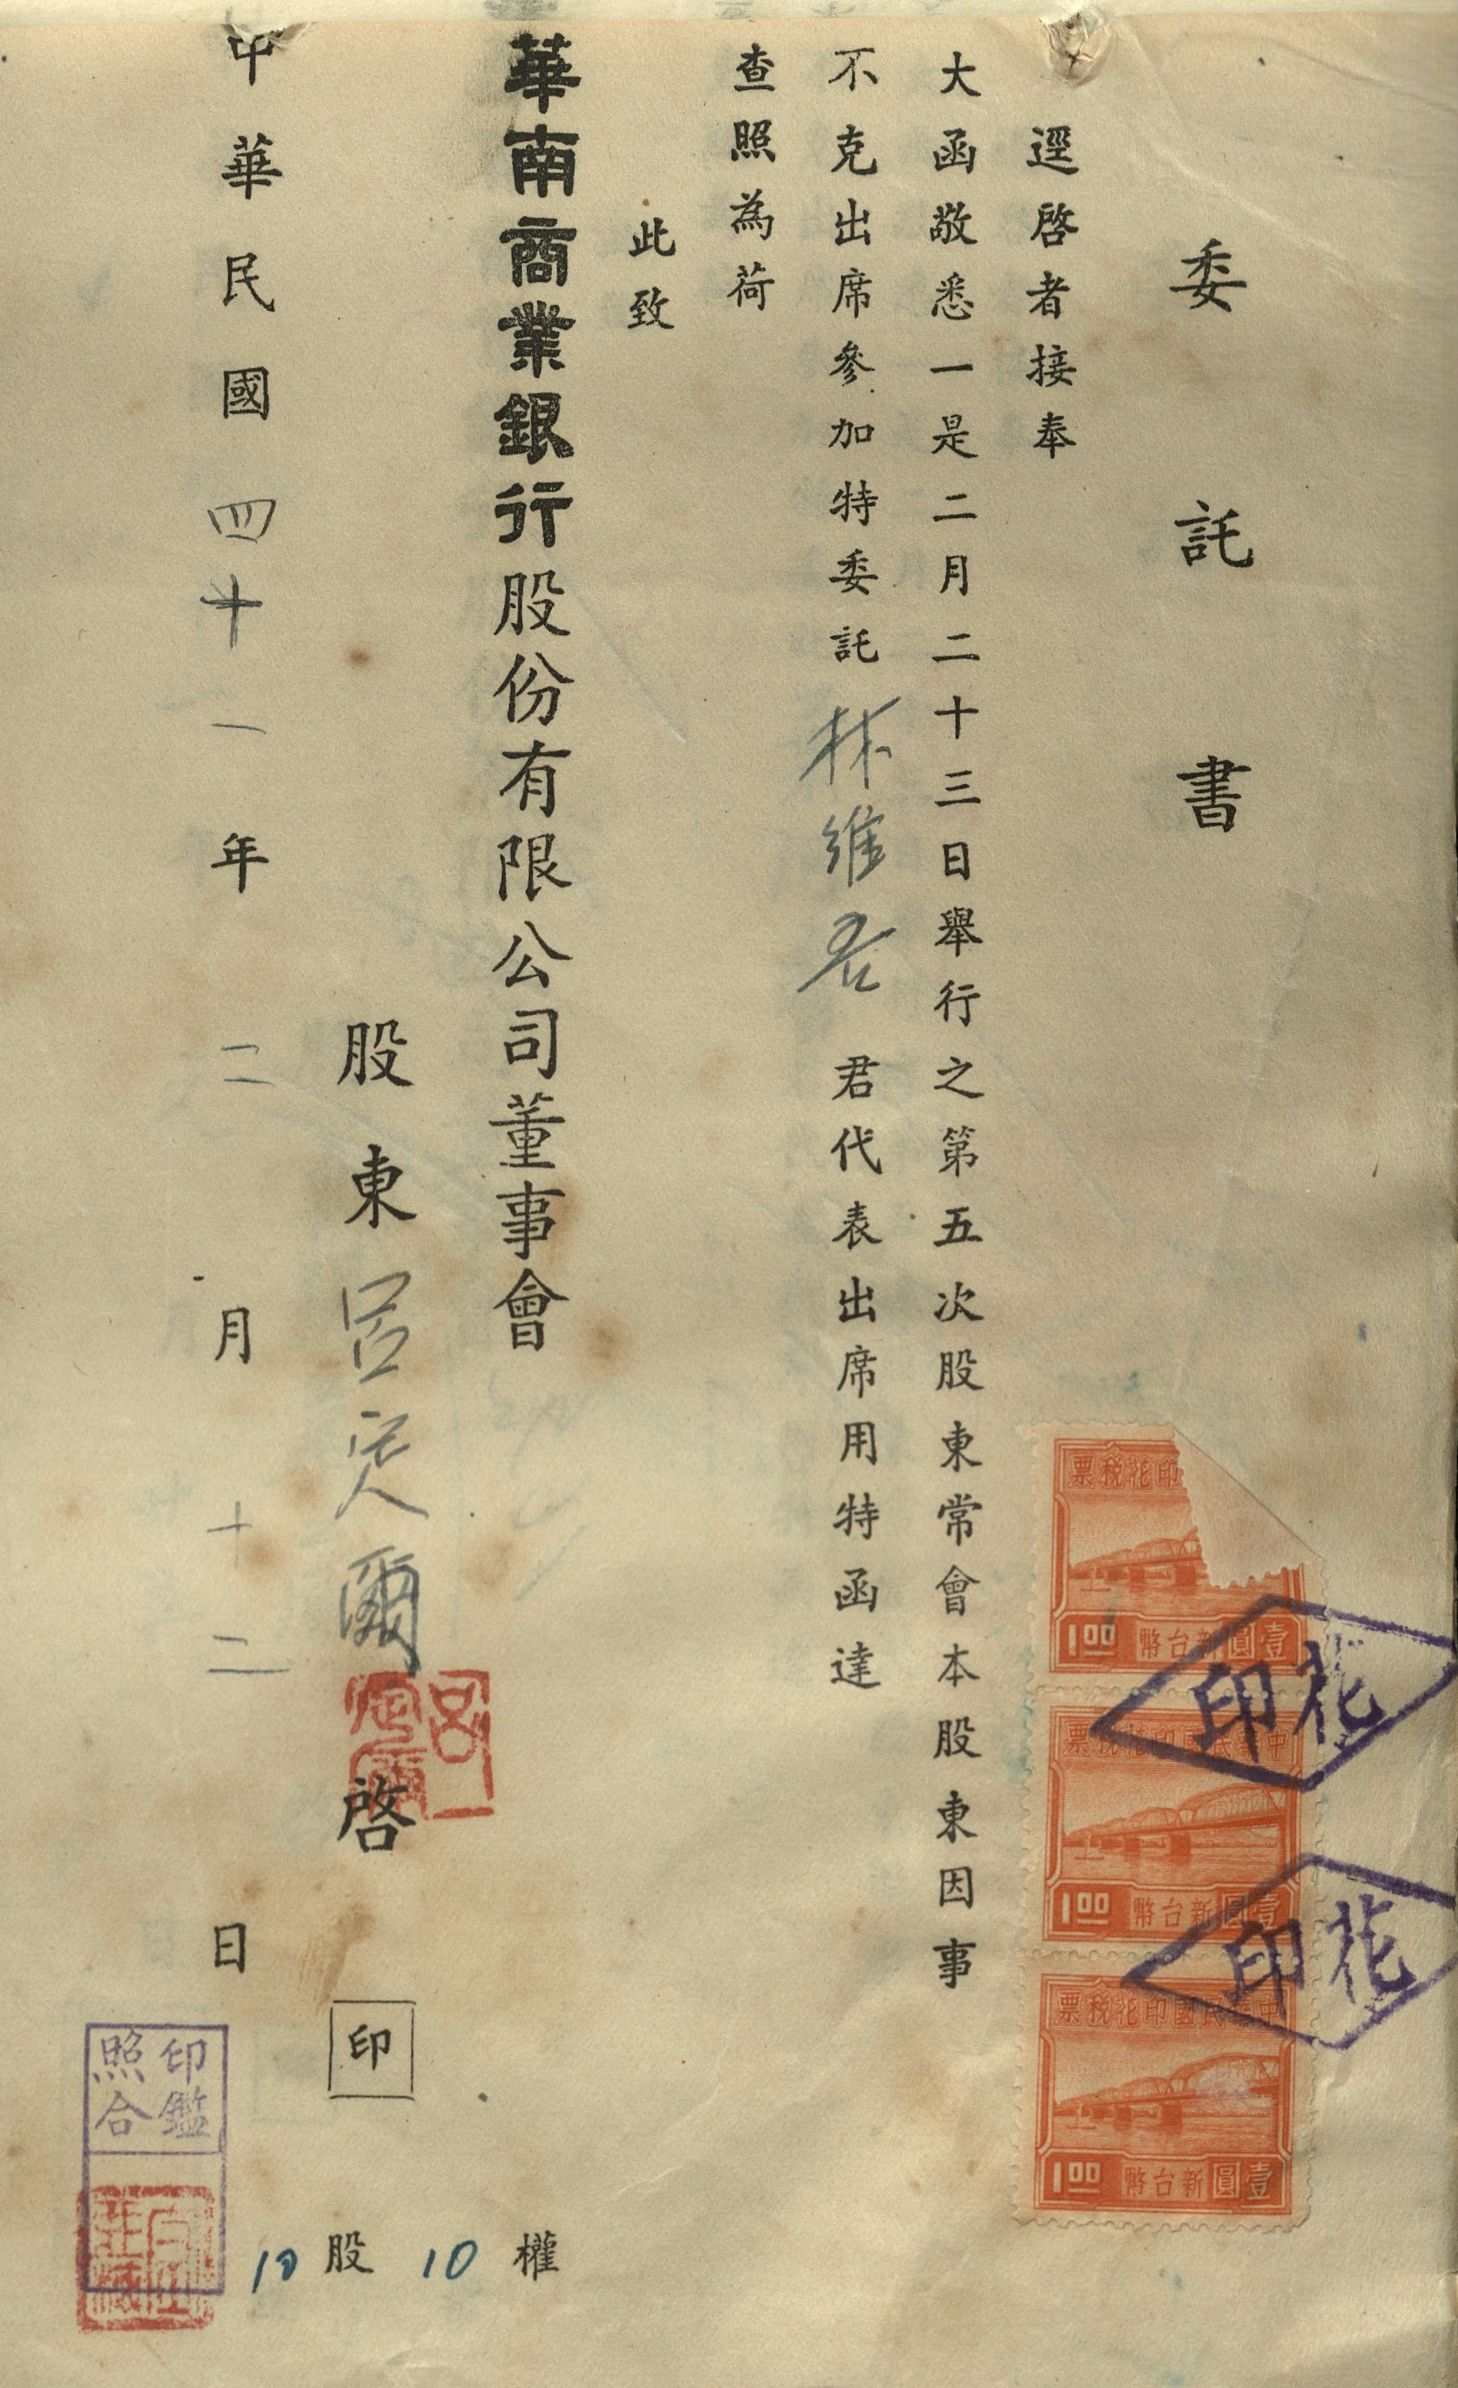 委託書
逕啓者接奉
大函敬悉一是二月二十三日舉行之第五次股東常會本股東因事
不克出席參加特委託林維吾君代表出席用特函達
查照為荷
此致
華南商業銀行股份有限公司董事會
股東呂定爾啓 印
中華民國四十一年二月十二日
10股10權
印花稅票
1.00 壹圓新台幣
花印
中華民國印花稅票
1.00 壹圓新台幣
花印
中華民國印花稅票
1.00 壹圓新台幣
呂定爾
印鑑
照合